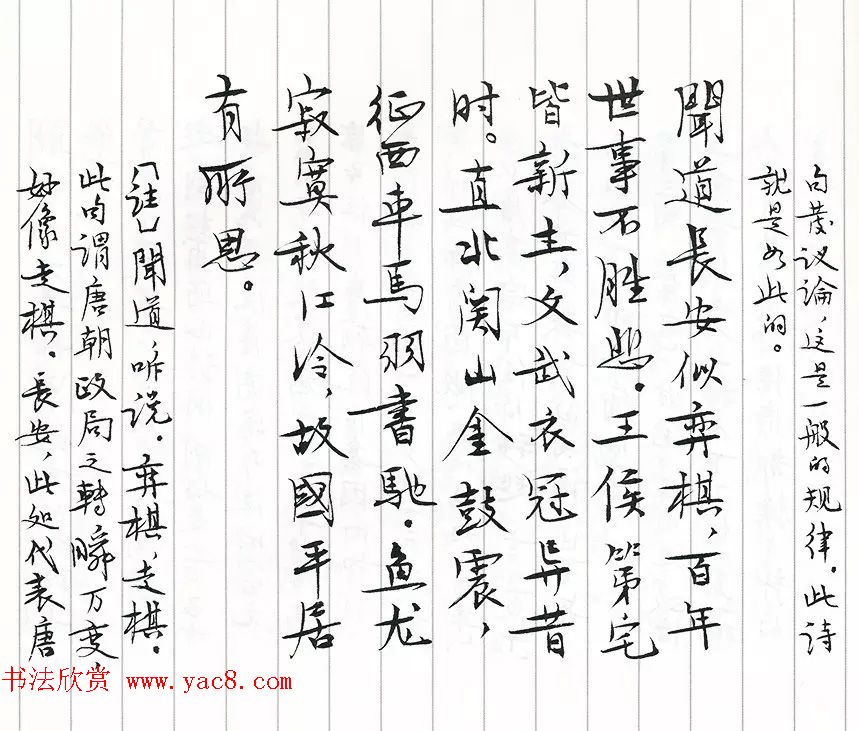 句发议论，这是一般的规律。此诗
就是如此的。
聞道長安似弈棋，百年
世事不胜悲。王侯第宅
皆新主，文武衣冠异昔
时。直北関山金鼓震，
征西車馬羽書馳。鱼龙
寂寞秋江冷，故國平居
有所思。
〔注〕聞道，听说。弈棋，走棋。
此句谓唐朝政局之轉瞬万变，
好像走棋。長安，此处代表唐
书法欣赏 www.yac8.com